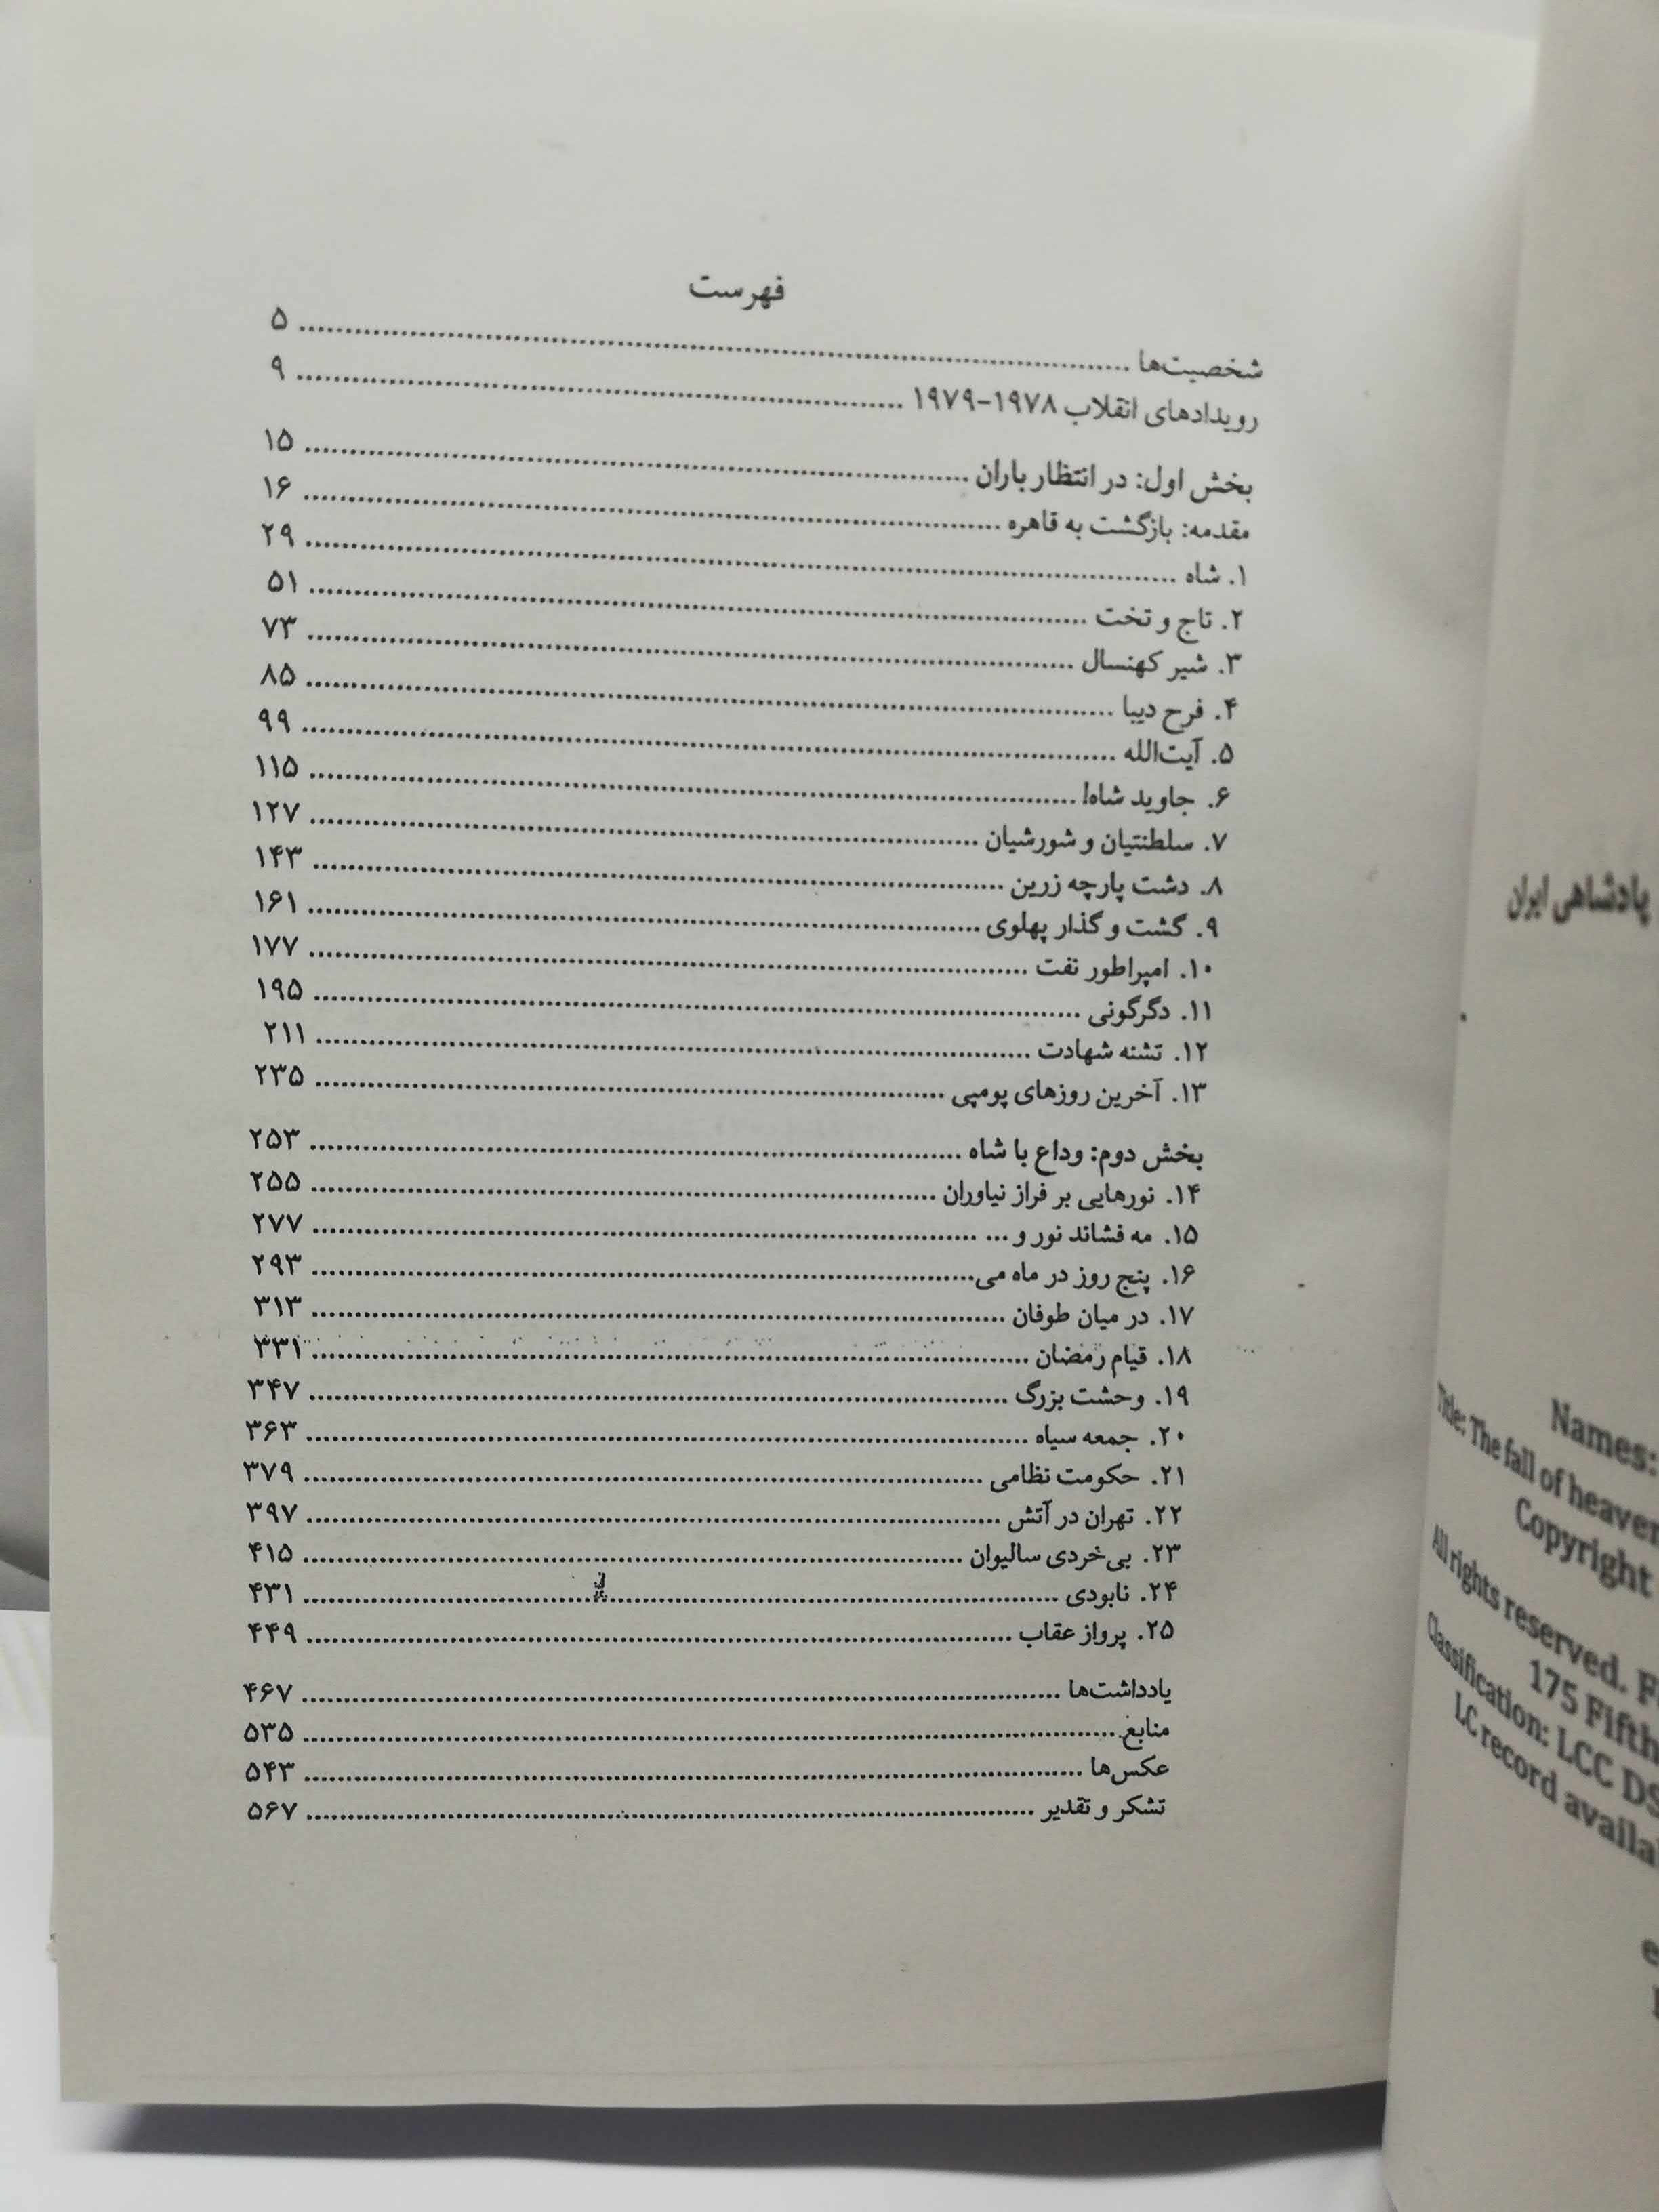 فهرست
شخصیت‌ها ........ ۵
رویدادهای انقلاب ۱۹۷۸-۱۹۷۹ ........ ۹
بخش اول: در انتظار باران ........ ۱۵
مقدمه: بازگشت به قاهره ........ ۱۶
۱. شاه ........ ۲۹
۲. تاج و تخت ........ ۵۱
۳. شیر کهنسال ........ ۷۳
۴. فرح دیبا ........ ۸۵
۵. آیت‌الله ........ ۹۹
۶. جاوید شاه! ........ ۱۱۵
۷. سلطنتیان و شورشیان ........ ۱۲۷
۸. دشت پارچه زرین ........ ۱۴۳
۹. گشت و گذار پهلوی ........ ۱۶۱
۱۰. امپراطور نفت ........ ۱۷۷
۱۱. دگرگونی ........ ۱۹۵
۱۲. تشنه شهادت ........ ۲۱۱
۱۳. آخرین روزهای پومپی ........ ۲۳۵
بخش دوم: وداع با شاه ........ ۲۵۳
۱۴. نورهایی بر فراز نیاوران ........ ۲۵۵
۱۵. مه فشاند نور و ... ........ ۲۷۷
۱۶. پنج روز در ماه می ........ ۲۹۳
۱۷. در میان طوفان ........ ۳۱۳
۱۸. قیام رمضان ........ ۳۳۱
۱۹. وحشت بزرگ ........ ۳۴۷
۲۰. جمعه سیاه ........ ۳۶۳
۲۱. حکومت نظامی ........ ۳۷۹
۲۲. تهران در آتش ........ ۳۹۷
۲۳. بی‌خردی سالیوان ........ ۴۱۵
۲۴. نابودی ........ ۴۳۱
۲۵. پرواز عقاب ........ ۴۴۹
یادداشت‌ها ........ ۴۶۷
منابع ........ ۵۳۵
عکس‌ها ........ ۵۴۳
تشکر و تقدیر ........ ۵۶۷
پادشاهی ایران
Names:
Title: The fall of heaven
Copyright
All rights reserved.
175 Fifth
Classification: LCC
LC record